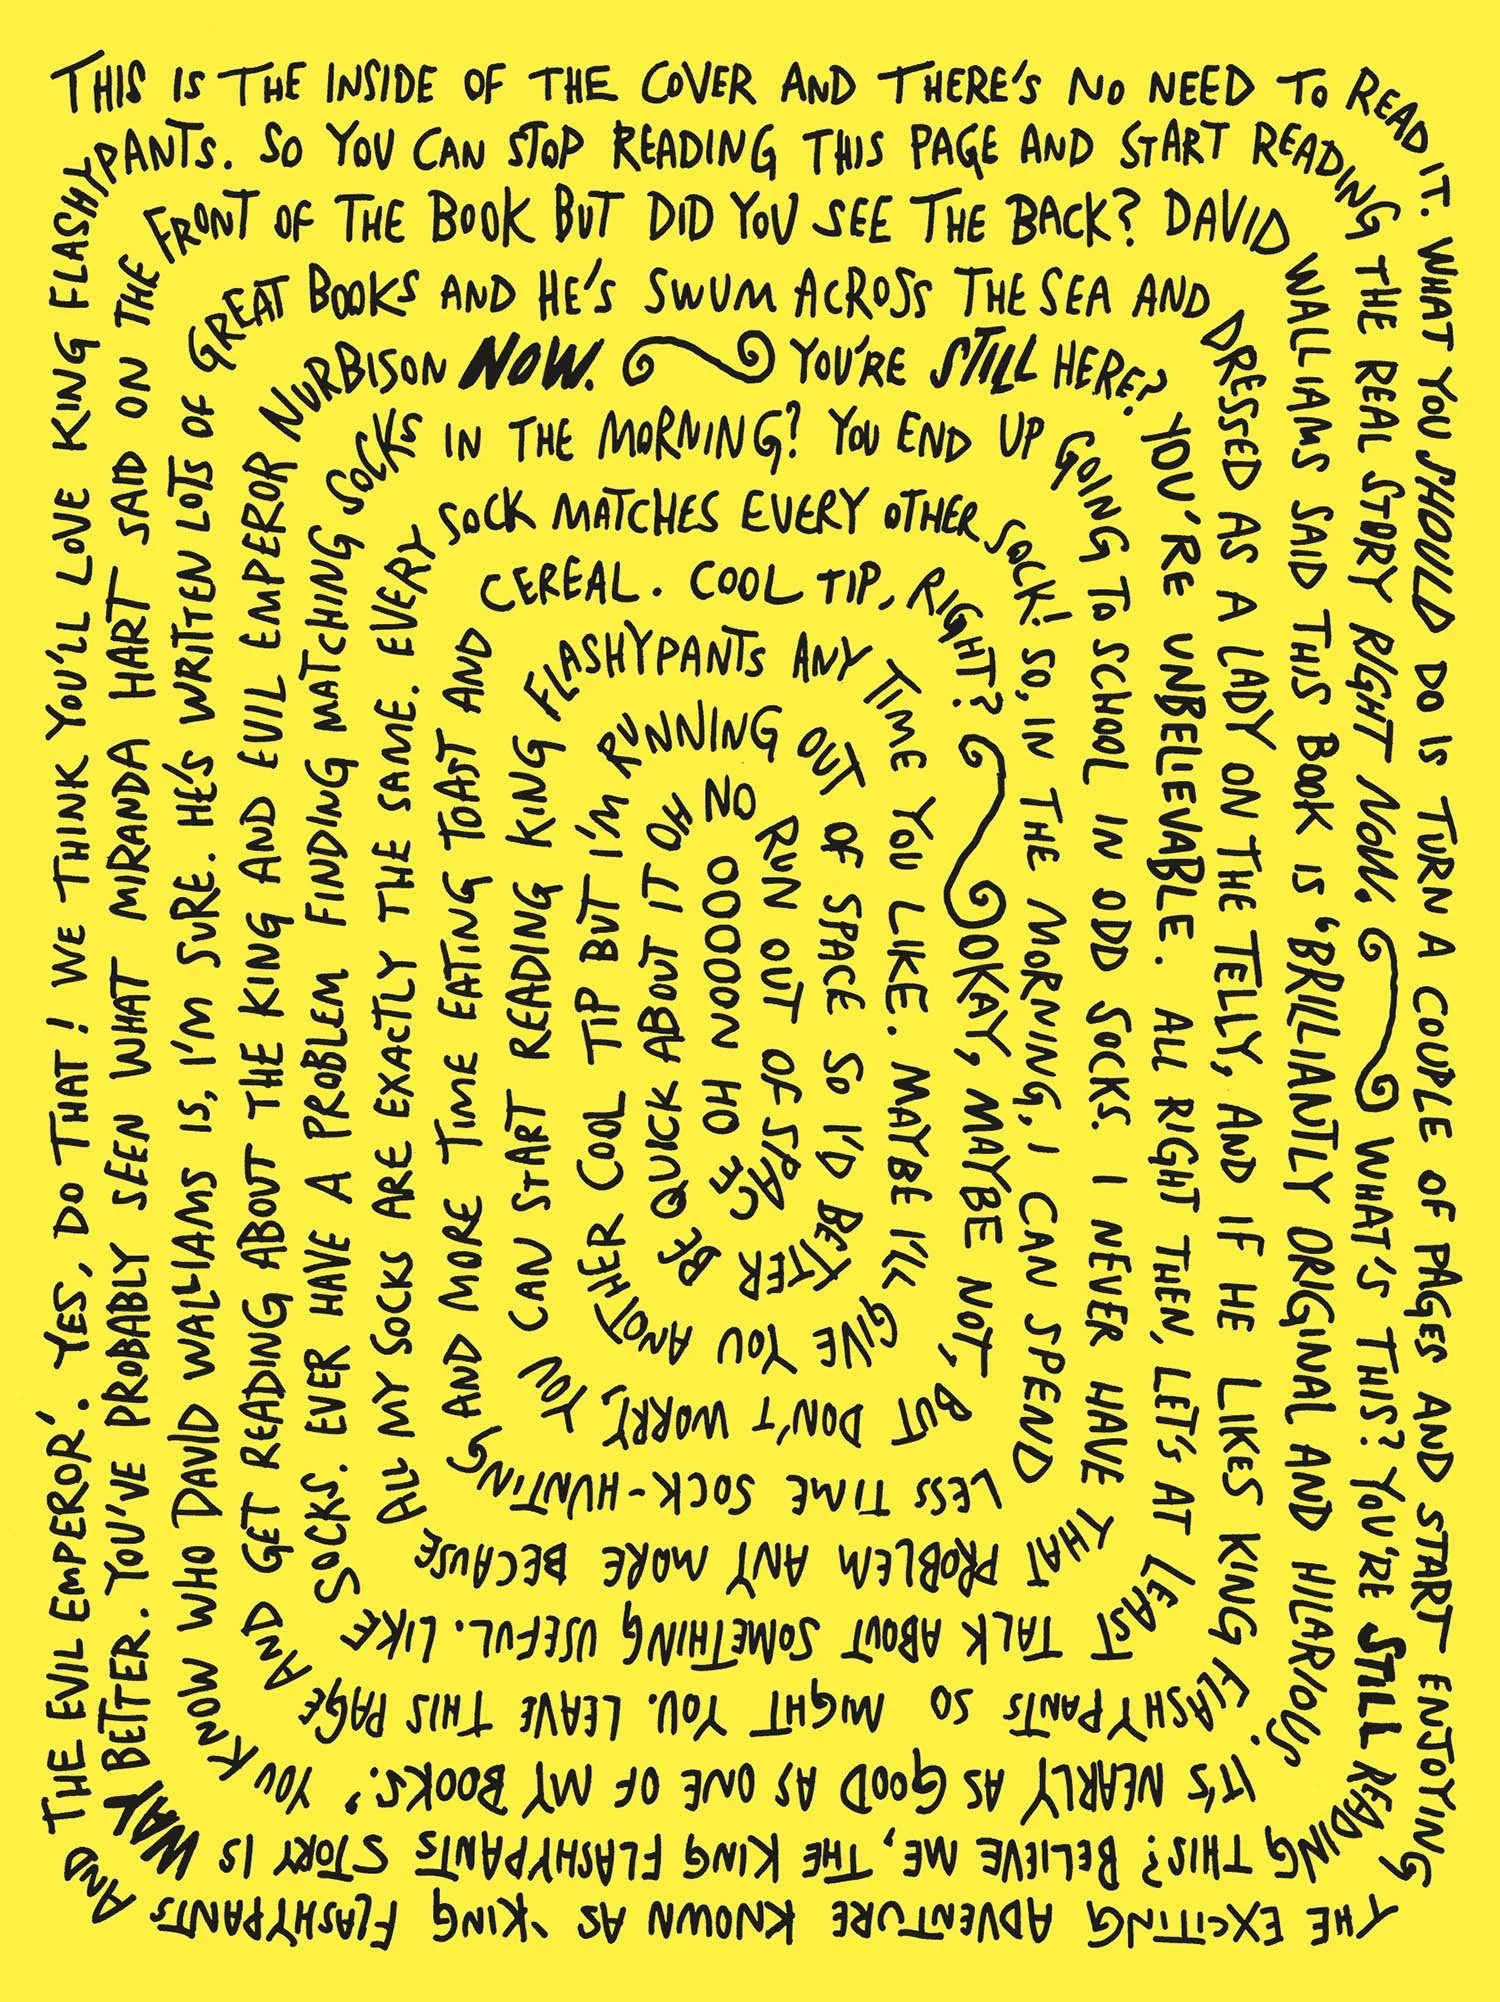 THIS IS THE INSIDE OF THE COVER AND THERE'S NO NEED TO READ IT.
WHAT YOU SHOULD DO IS TURN A COUPLE OF PAGES AND START ENJOYING
THE EXCITING ADVENTURE KNOWN AS 'KING FLASHYPANTS
AND THE EVIL EMPEROR'. YES, DO THAT! WE THINK YOU'LL LOVE KING FLASHY
PANTS. SO YOU CAN STOP READING THIS PAGE AND START READING
THE REAL STORY RIGHT NOW. WHAT'S THIS? YOU'RE STILL READING
THIS? BELIEVE ME, THE KING FLASHYPANTS STORY IS WAY
BETTER. YOU'VE PROBABLY SEEN WHAT MIRANDA HART SAID ON THE
FRONT OF THE BOOK BUT DID YOU SEE THE BACK? DAVID
WALLIAMS SAID THIS BOOK IS 'BRILLIANTLY ORIGINAL AND HILARIOUS.
IT'S NEARLY AS GOOD AS ONE OF MY BOOKS.' YOU
KNOW WHO DAVID WALLIAMS IS, I'M SURE. HE'S WRITTEN LOTS OF
GREAT BOOKS AND HE'S SWUM ACROSS THE SEA AND
DRESSED AS A LADY ON THE TELLY, AND IF HE LIKES KING
FLASHYPANTS SO MIGHT YOU. LEAVE THIS PAGE
AND GET READING ABOUT THE KING AND EVIL EMPEROR
NURBISON NOW. YOU'RE STILL HERE?
YOU'RE UNBELIEVABLE. ALL RIGHT THEN, LET'S AT LEAST
TALK ABOUT SOMETHING USEFUL. LIKE
SOCKS. EVER HAVE A PROBLEM FINDING MATCHING SOCKS
IN THE MORNING? YOU END UP
GOING TO SCHOOL IN ODD SOCKS. I NEVER HAVE THAT
PROBLEM ANY MORE BECAUSE
ALL MY SOCKS ARE EXACTLY THE SAME. EVERY
SOCK MATCHES EVERY OTHER SOCK!
SO, IN THE MORNING, I CAN SPEND
LESS TIME SOCK-HUNTING
AND MORE TIME EATING TOAST AND
CEREAL. COOL TIP, RIGHT?
OKAY, MAYBE NOT, BUT
DON'T WORRY, YOU
CAN START READING KING
FLASHYPANTS ANY TIME
YOU LIKE. MAYBE I'LL
GIVE YOU ANOTHER
COOL TIP BUT I'M
RUNNING OUT
OF SPACE SO I'D BETTER
BE QUICK ABOUT IT
OH NO
RUN OUT OF SPACE
OH NOOOOO
OOO